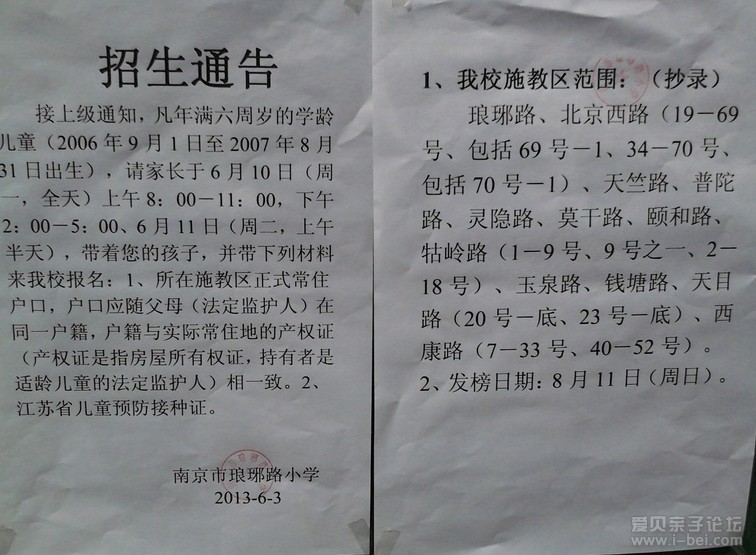 招生通告
接上级通知，凡年满六周岁的学龄
儿童（2006 年 9 月 1 日至 2007 年 8 月
31 日出生），请家长于 6 月 10 日（周
一，全天）上午 8：00－11：00，下午
2：00－5：00、6 月 11 日（周二，上午
半天），带着您的孩子，并带下列材料
来我校报名：1、所在施教区正式常住
户口，户口应随父母（法定监护人）在
同一户籍，户籍与实际常住地的产权证
（产权证是指房屋所有权证，持有者是
适龄儿童的法定监护人）相一致。2、
江苏省儿童预防接种证。
南京市琅琊路小学
2013-6-3
1、我校施教区范围：（抄录）
琅琊路、北京西路（19－69
号、包括 69 号－1、34－70 号、
包括 70 号－1）、天竺路、普陀
路、灵隐路、莫干路、颐和路、
牯岭路（1－9 号、9 号之一、2－
18 号）、玉泉路、钱塘路、天目
路（20 号－底、23 号－底）、西
康路（7－33 号、40－52 号）。
2、发榜日期：8 月 11 日（周日）。
爱贝亲子论坛
www.i-bei.com